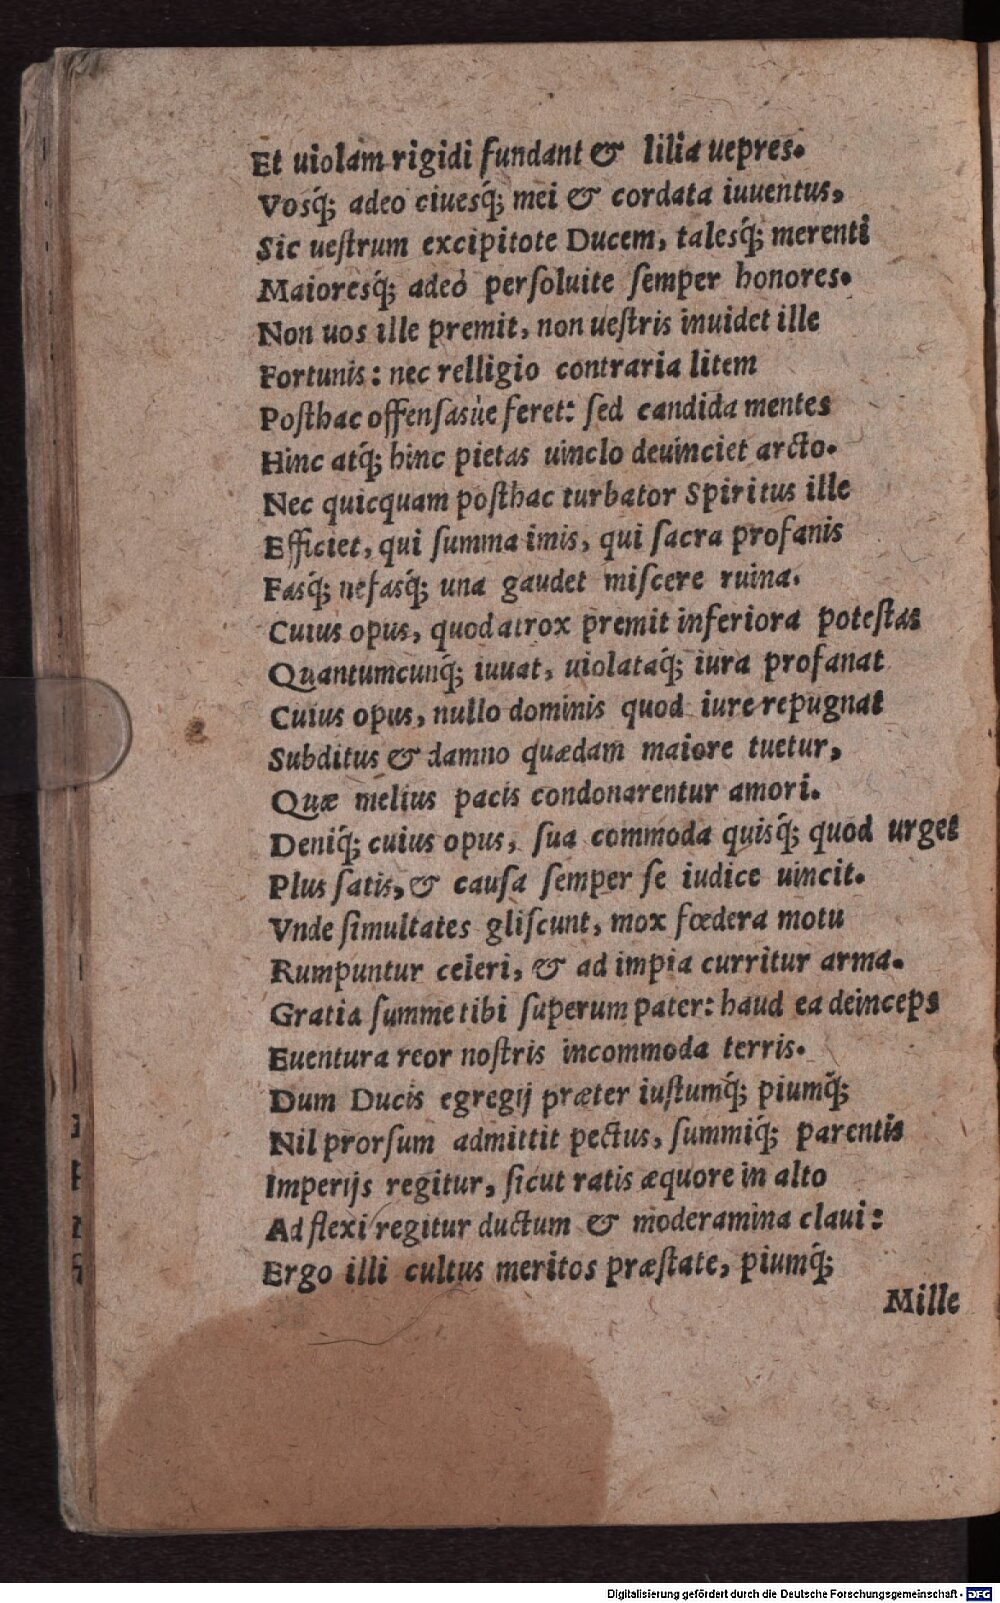 Et uiolam rigidi fundant & lilia uepres.
Vosq́; adeo ciuesq́; mei & cordata iuuentus,
Sic ueſtrum excipitote Ducem, talesq́; merenti
Maioresq́; adeò perſoluite ſemper honores.
Non uos ille premit, non ueſtris inuidet ille
Fortunis: nec relligio contraria litem
Poſthac offenſasùe feret: ſed candida mentes
Hinc atq́; hinc pietas uinclo deuinciet arcto.
Nec quicquam poſthac turbator Spiritus ille
Efficiet, qui ſumma imis, qui ſacra profanis
Fasq́; nefasq́; una gaudet miſcere ruina.
Cuius opus, quod atrox premit inferiora poteſtas
Quantumcunq́; iuuat, uiolataq́; iura profanat
Cuius opus, nullo dominis quod iure repugnat
Subditus & damno quædam maiore tuetur,
Quæ melius pacis condonarentur amori.
Deniq́; cuius opus, ſua commoda quisq́; quod urget
Plus ſatis, & cauſa ſemper ſe iudice uincit.
Vnde ſimultates gliſcunt, mox fœdera motu
Rumpuntur celeri, & ad impia curritur arma.
Gratia ſumme tibi ſuperum pater: haud ea deinceps
Euentura reor noſtris incommoda terris.
Dum Ducis egregij præter iuſtumq́; piumq́;
Nil prorſum admittit pectus, ſummiq́; parentis
Imperijs regitur, ſicut ratis æquore in alto
Ad flexi regitur ductum & moderamina claui:
Ergo illi cultus meritos præſtate, piumq́;
Mille
Digitalisierung gefördert durch die Deutsche Forschungsgemeinschaft - DFG